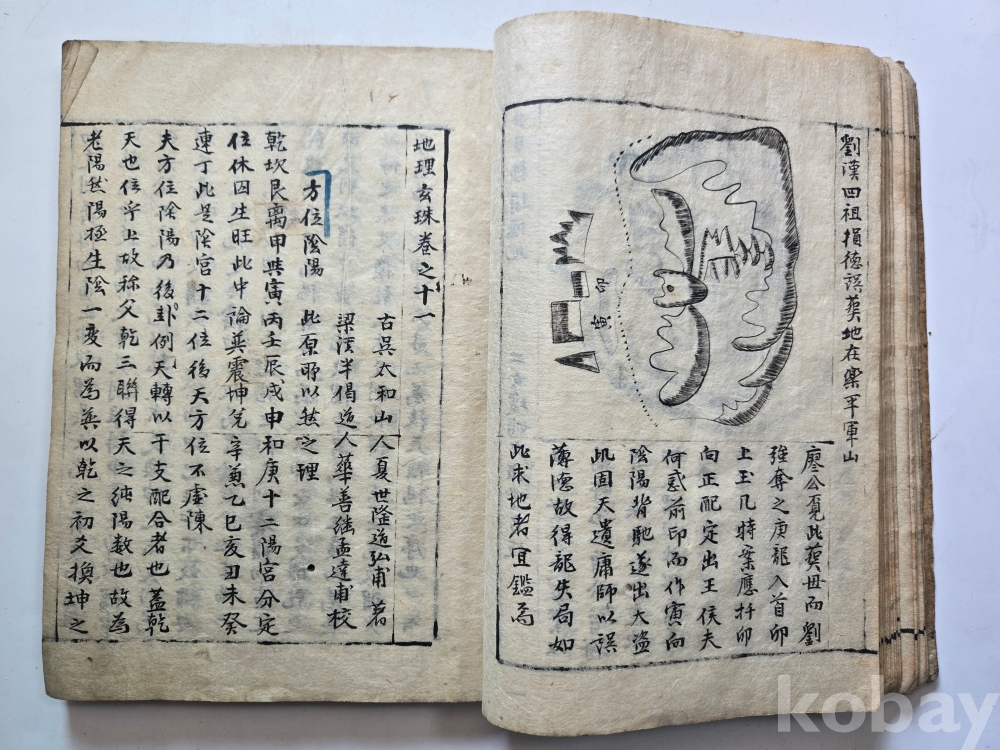 劉漢四祖損德誤葬地在樂平軍山
寅
廖公覓此葬母而劉
強奪之庚龍入首卯
上玉几特案應扦卯
向正配定出王侯夫
何惑前印而作寅向
陰陽背馳遂出大盜
此固天遺庸師以誤
薄德故得龍失局如
此求地者宜鑑焉
地理玄珠卷之十一
古吳太和山人夏世隆道弘甫著
梁溪半偈道人華善継孟達甫校
方位陰陽 此原所以然之理
乾坎艮离甲與寅丙壬辰戌申和庚十二陽宮分定
位休囚生旺此中論巽震坤兌辛兼乙巳亥丑未癸
連丁此是陰宮十二位後天方位不虛陳
夫方位陰陽乃後卦例天轉以干支配合者也蓋乾
天也位乎上故称父乾三聯得天之純陽数也故為
老陽然陽極生陰一变而為巽以乾之初爻換坤之
kobay